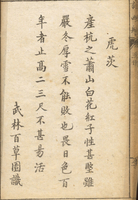 虎茨
產杭之蕭山白花紅子性甚堅雖
嚴冬厚雪不能敗也畏日色百
年者止高二三尺不甚易活
武林百草園識